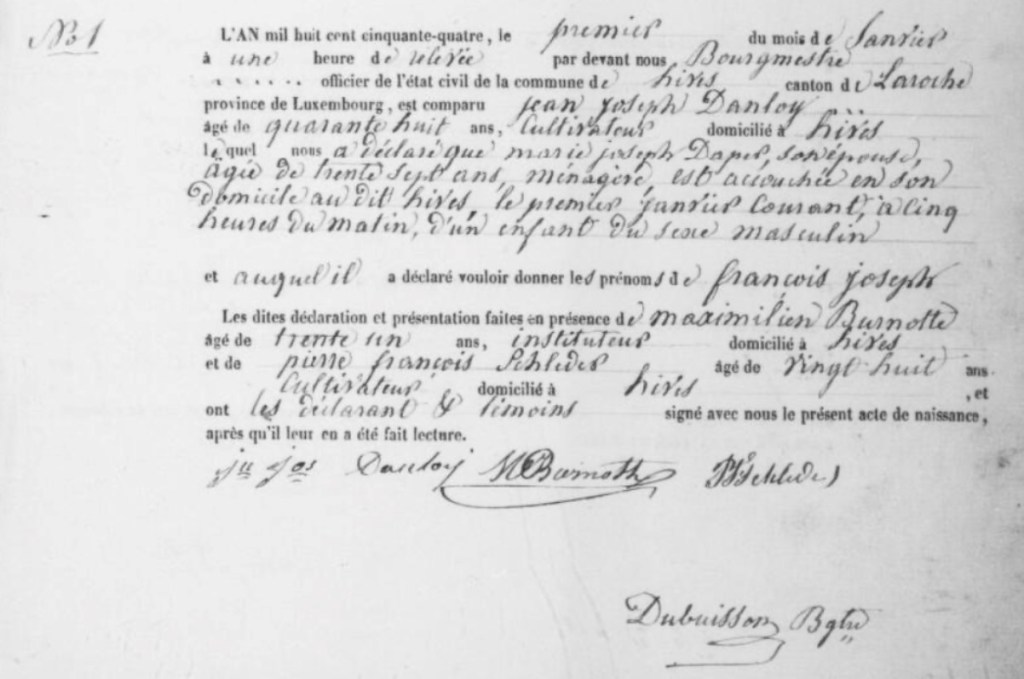 No 1
L'AN mil huit cent cinquante-quatre, le premier du mois de Janvier
à une heure de relevée par devant nous Bourgmestre
officier de l'état civil de la commune de hives canton de Laroche
province de Luxembourg, est comparu jean joseph Danloy
âgé de quarante huit ans, Cultivateur domicilié à hives
lequel nous a déclaré que marie joseph Daper, son épouse,
âgée de trente sept ans, ménagère, est accouchée en son
domicile au dit hives, le premier janvier Courant, à cinq
heures du matin, d'un enfant du sexe masculin
et auquel il a déclaré vouloir donner les prénoms de françois joseph
Les dites déclaration et présentation faites en présence de maximilien Burnotte
âgé de trente un ans, instituteur domicilié à hives
et de pierre françois Schleder âgé de vingt huit ans.
Cultivateur domicilié à hives, et
ont les déclarant & témoins signé avec nous le présent acte de naissance,
après qu'il leur en a été fait lecture.
jn jos Danloy M Burnotte Schleder
Dubuisson Bgtre